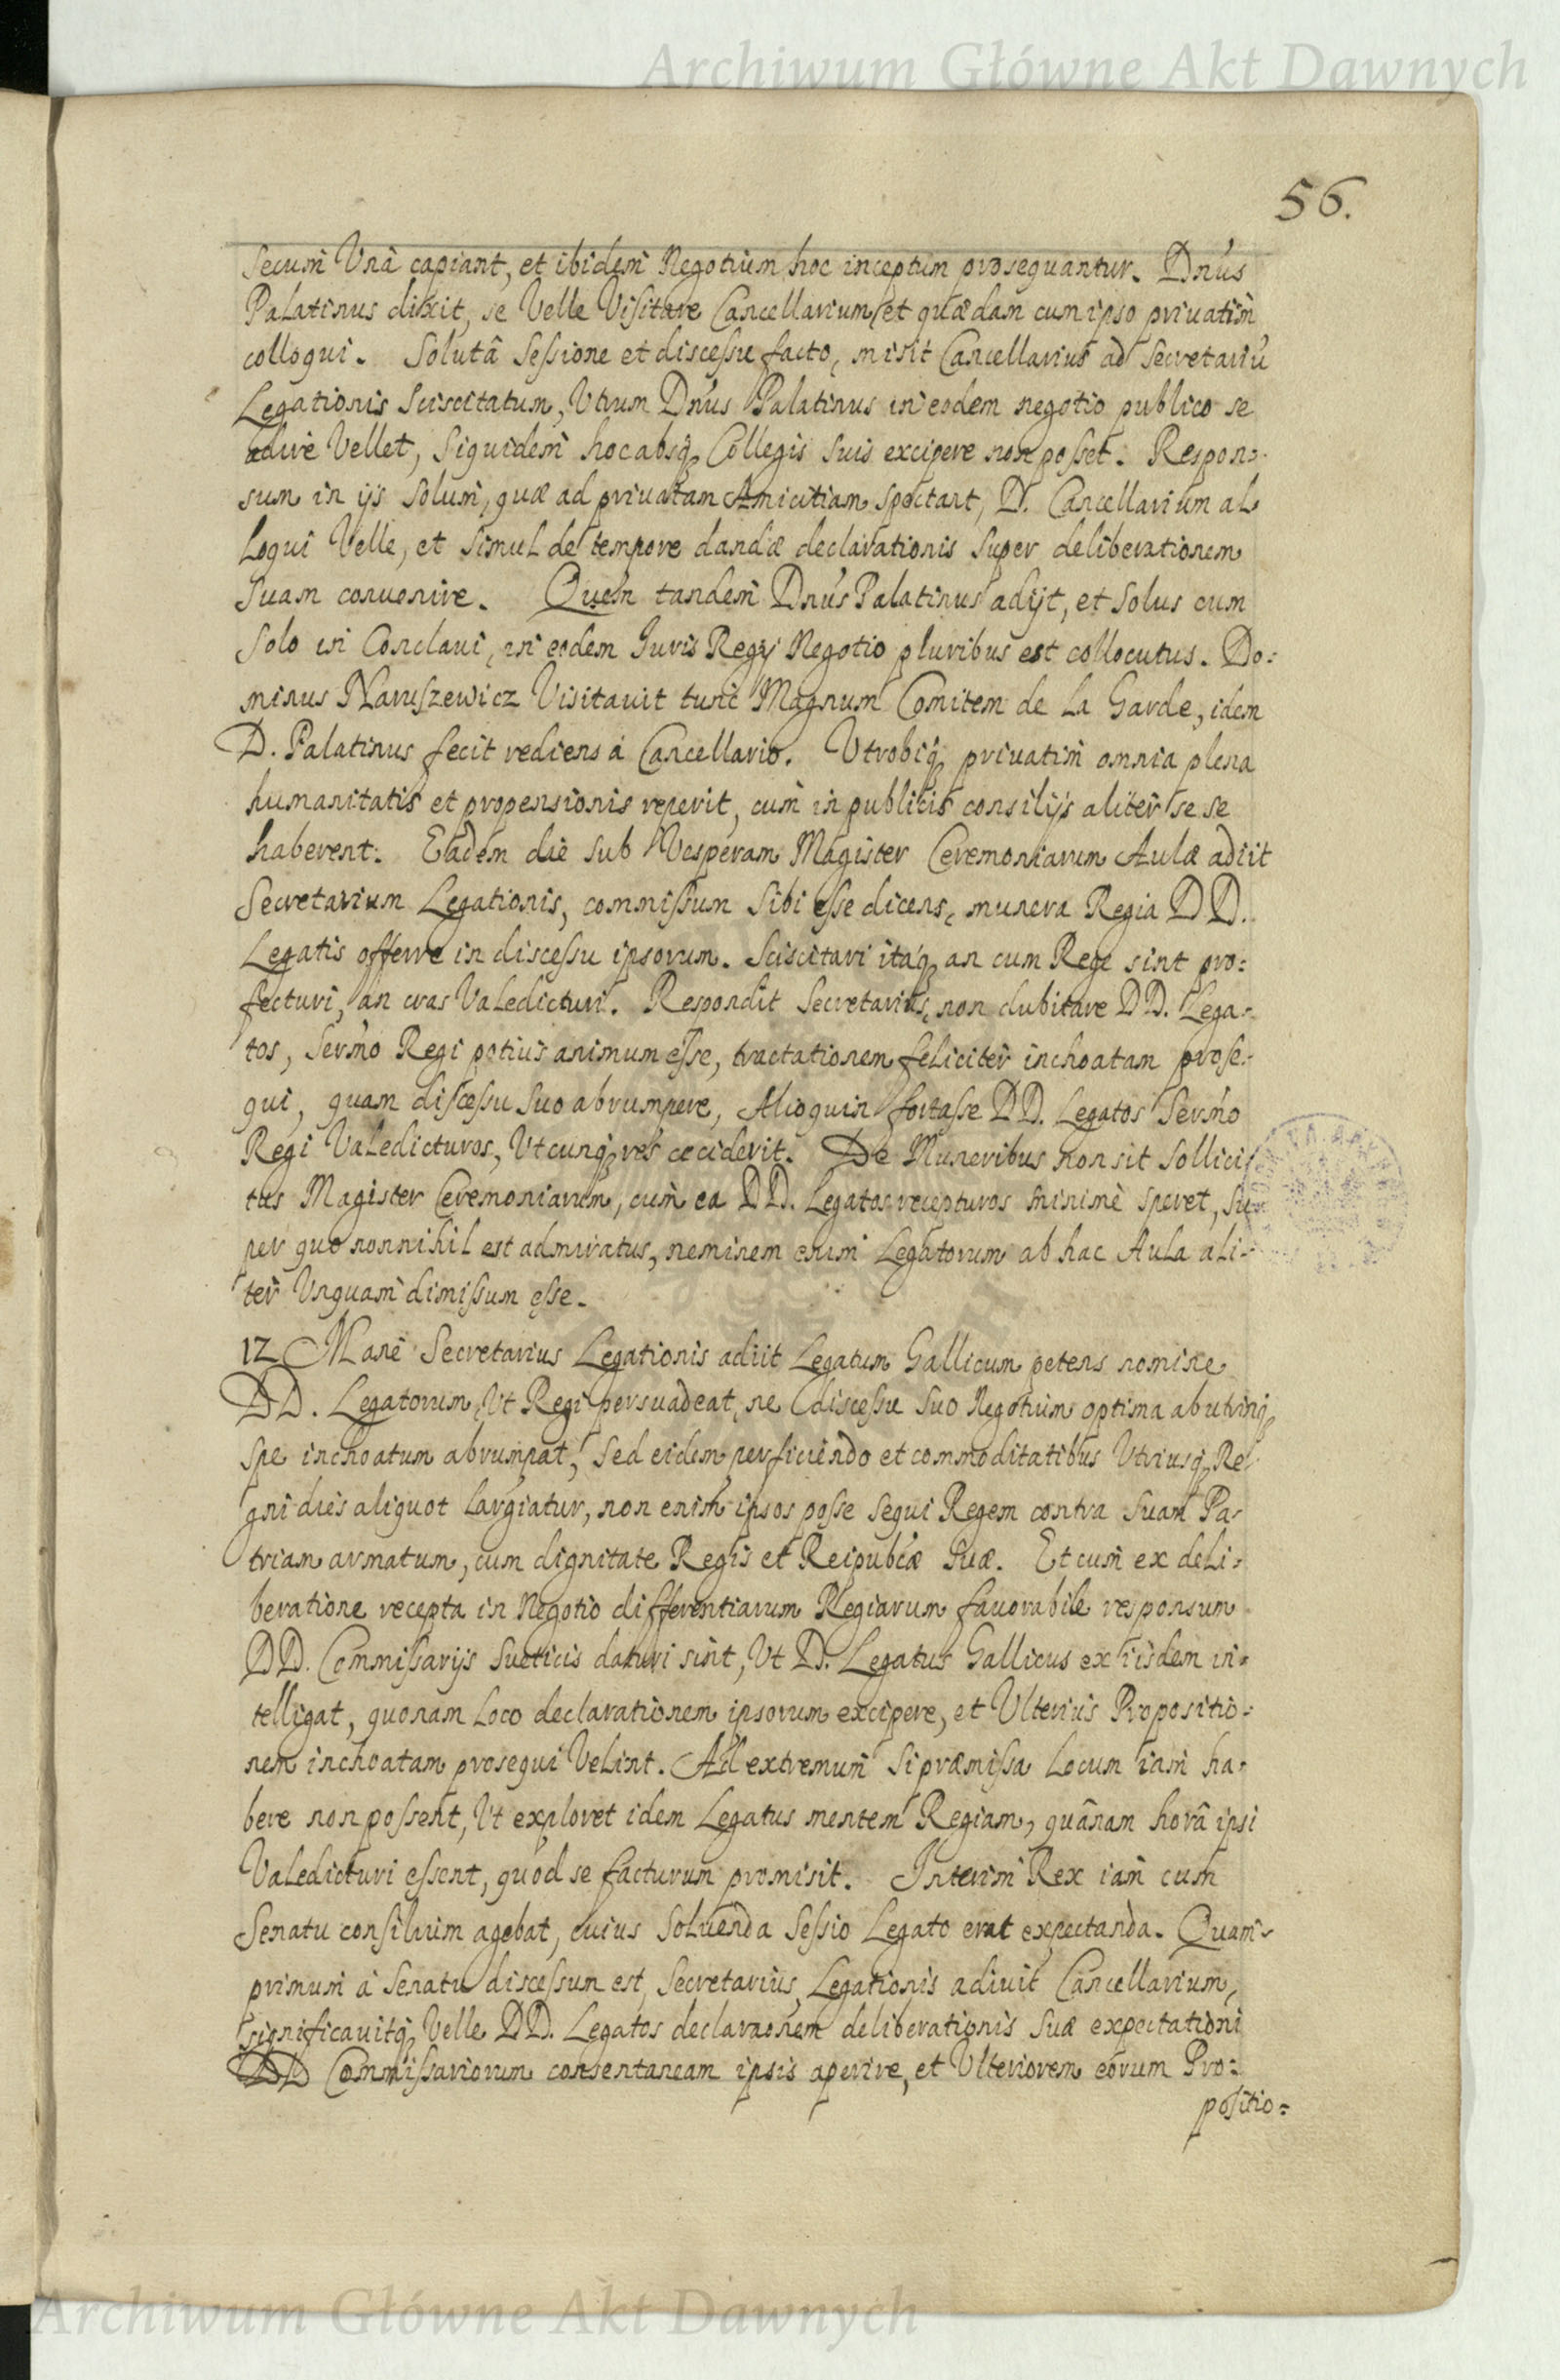 Archiwum Główne Akt Dawnych
56.
secum Unâ capiant, et ibidem Negotium hoc inceptum prosequantur. Dnus
Palatinus dixit, se Velle Visitare Cancellarium et quædam cum ipso privatim
colloqui. Solutâ Sessione et discessu facto, misit Cancellarius ad Secretariũ
Legationis Sciscitatum, Utrum Dnus Palatinus in eodem negotio publico se
adire Vellet, Siquidem hoc absq Collegis suis excipere non posset. Respon-
sum in ijs Solum, quæ ad privatam Amicitiam spectant, D. Cancellarium al
loqui Velle, et simul de tempore dandæ declarationis super deliberationem
suam convenire. Quem tandem Dnus Palatinus adijt, et Solus cum
Solo in Conclavi, in eodem Iuris Regij Negotio pluribus est collocutus. Do:
minus Naruszewicz Visitavit tunc Magnum Comitem de La Garde, idem
D. Palatinus fecit rediens á Cancellario. Utrobiq privatim omnia plena
humanitatis et propensionis reperit, cum in publicis consilijs aliter se se
haberent. Eadem die sub Vesperam Magister Ceremoniarum Aulæ adiit
Secretarium Legationis, commissum Sibi esse dicens, munera Regia DD.
Legatis offerre in discessu ipsorum. Sciscitari itaq an cum Rege sint pro:
fecturi, an cras Valedicturi. Respondit Secretarius, non dubitare DD. Lega-
tos, Sermo Regi potius animum esse, tractationem feliciter inchoatam prose-
qui, quam discessu suo abrumpere, Alioquin fortasse DD. Legatos Sermo
Regi Valedicturos, Utcunq res ceciderit. De Muneribus non sit Sollici
tus Magister Ceremoniarum, cum ea DD. Legatos recepturos minimè speret, Su-
per quo nonnihil est admiratus, neminem enim Legatorum ab hac Aula ali-
ter Unquam dimissum esse.
12 Mane Secretarius Legationis adiit Legatum Gallicum petens nomine
DD. Legatorum, Ut Regi persuadeat, ne discessu suo Negotium optima ab utrinq
spe inchoatum abrumpat, Sed eidem perficiendo et commoditatibus Utriusq Re
gni dies aliquot largiatur, non enim ipsos posse sequi Regem contra Suam Pa-
triam armatum, cum dignitate Regis et Reipubcæ suæ. Et cum ex deli-
beratione recepta in Negotio differentiarum Regiarum favorabile responsum
DD. Commissarijs Sueticis daturi sint, Ut D. Legatus Gallicus ex iisdem in-
telligat, quonam Loco declarationem ipsorum excipere, et Ulterius Propositio-
nem inchoatam prosequi Velint. Ad extremum si præmissa Locum iam ha-
bere non possent, Ut exploret idem Legatus mentem Regiam, quânam horâ ipsi
Valedicturi essent, quod se facturum promisit. Interim Rex iam cum
Senatu consilium agebat, cuius Solvenda Sessio Legato erat expectanda. Quam-
primum á Senatu discessum est, Secretarius Legationis adivit Cancellarium,
significavitq Velle DD. Legatos declaraonem deliberationis suæ expectationi
DD Commissariorum consentaneam ipsis aperire, et Ulteriorem eorum Pro:
positio:
Archiwum Główne Akt Dawnych